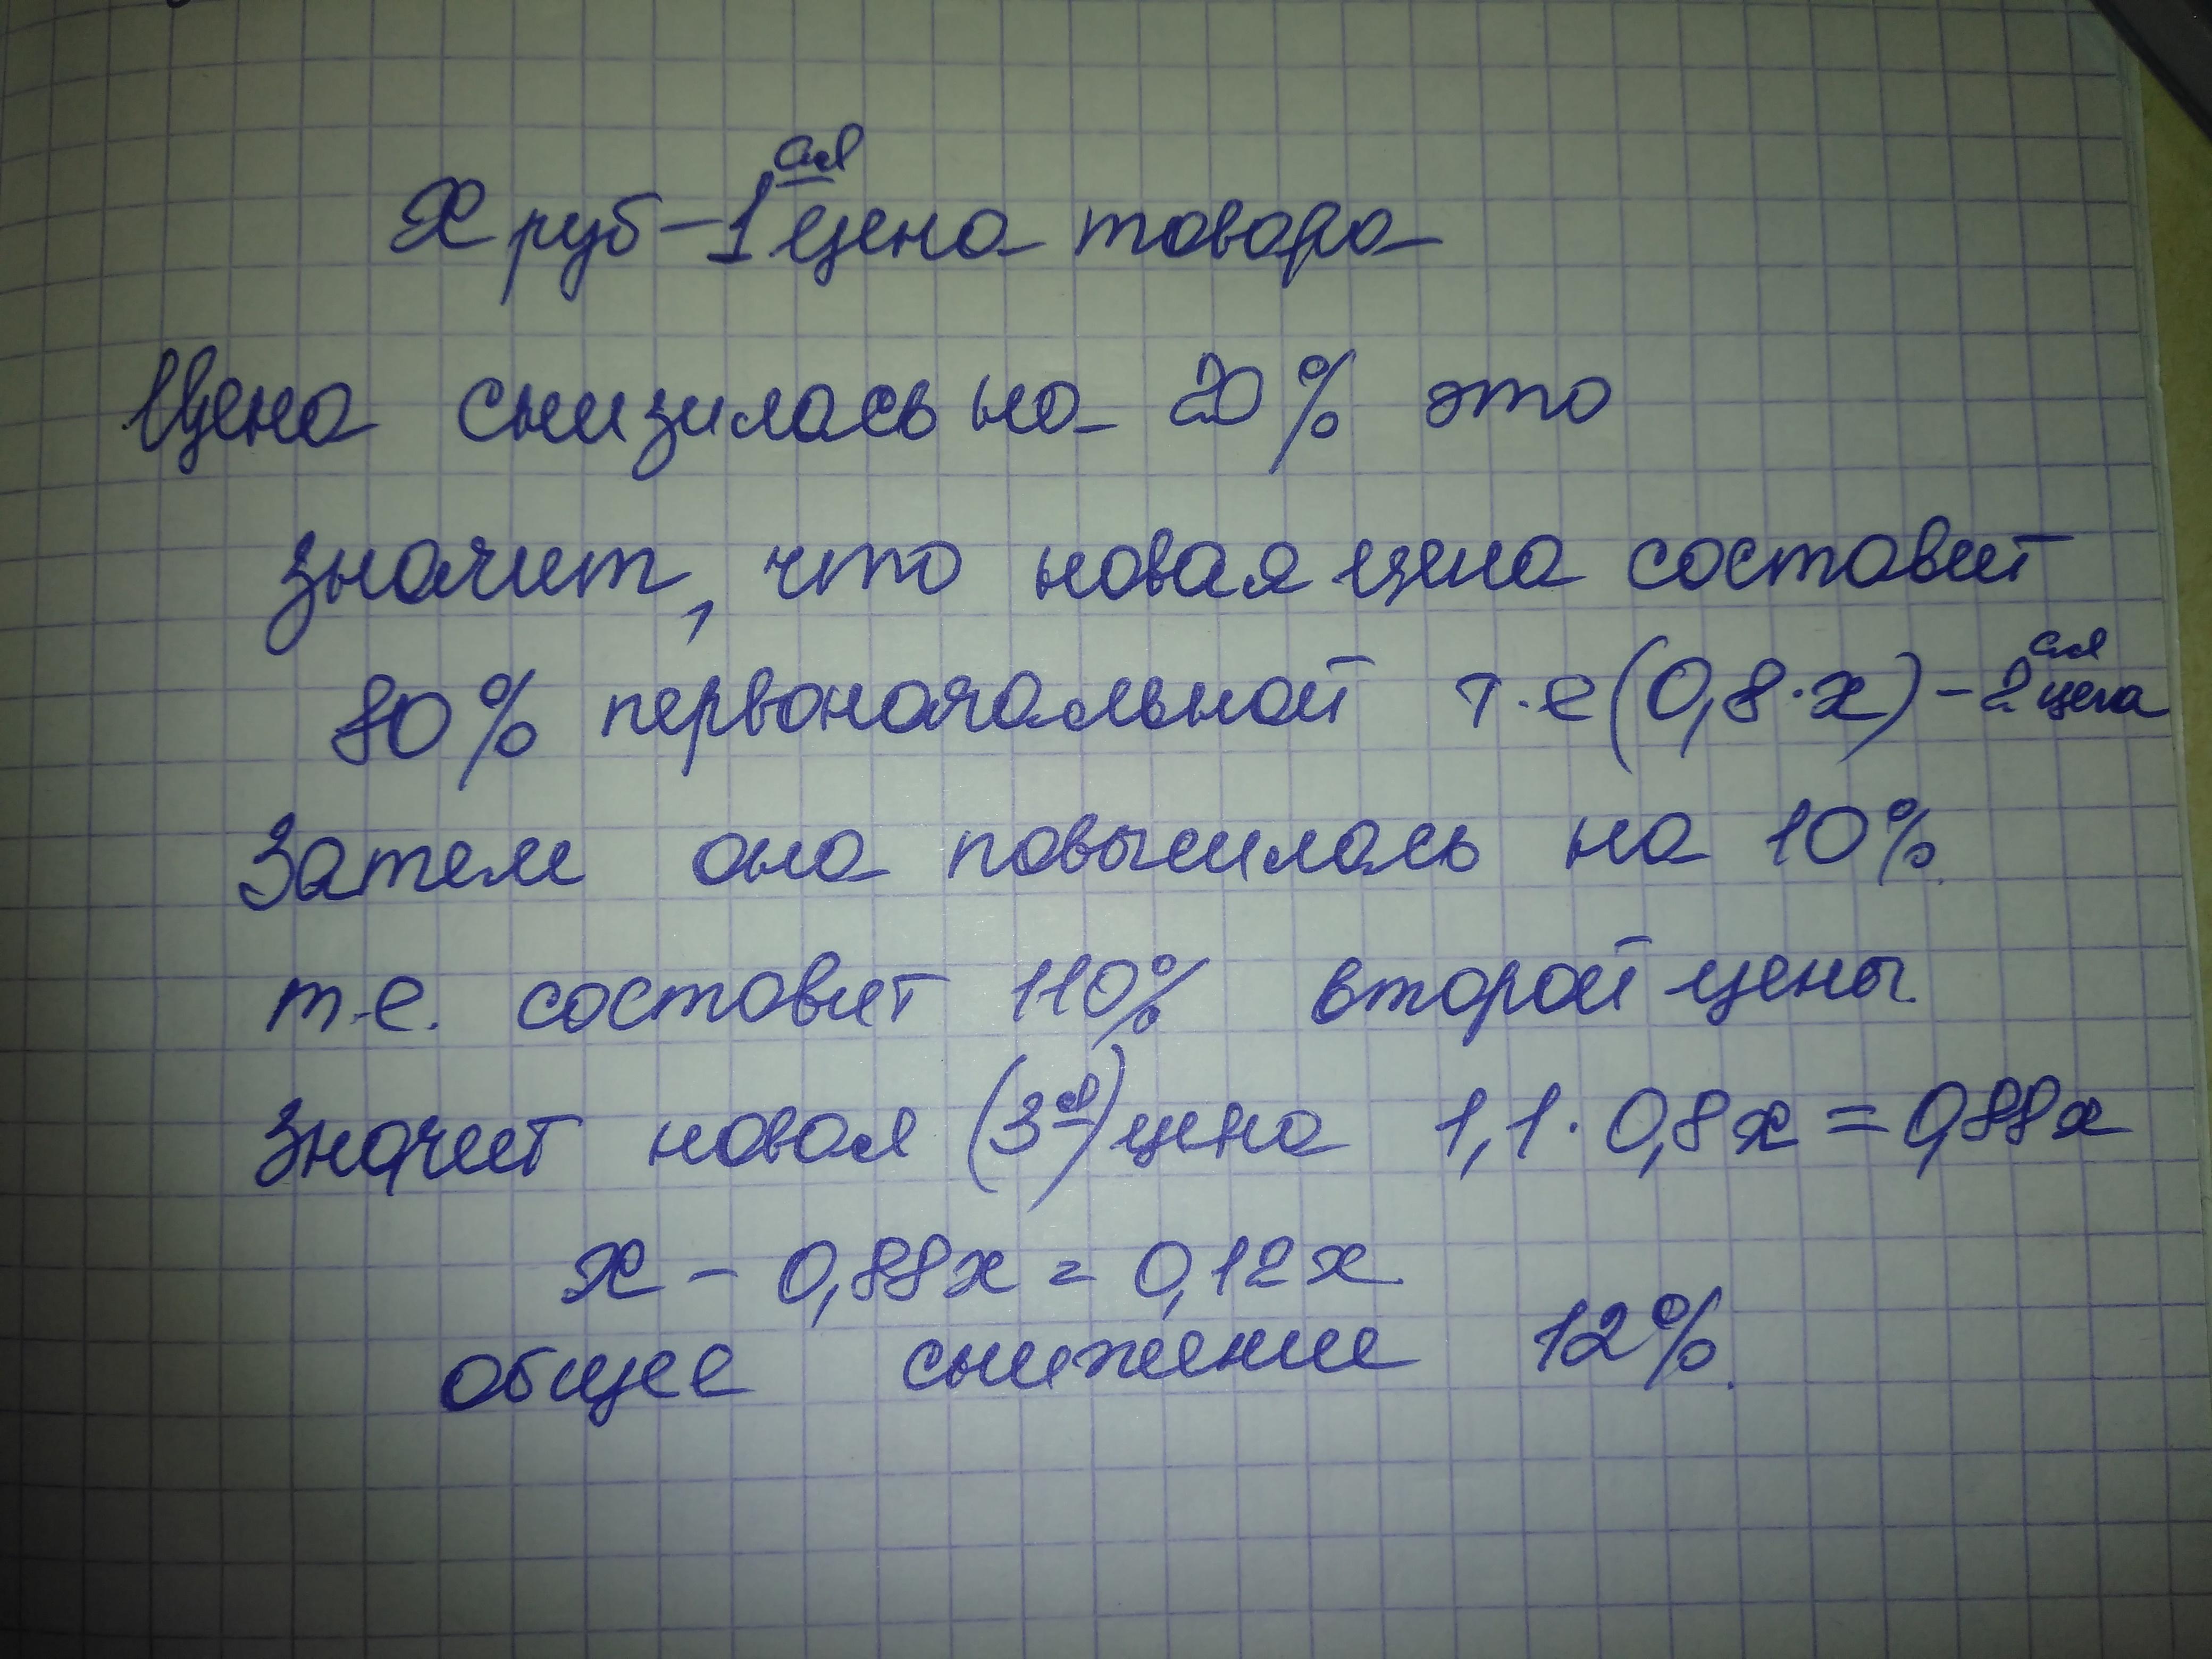 x руб – 1ая цена товара
Цена снизилась на 20% это
значит, что новая цена составит
80% первоначальной т.е (0,8·x) – 2ая цена
Затем она повысилась на 10%.
т.е. составит 110% второй цены.
Значит новая (3я) цена 1,1 · 0,8x = 0,88x
x – 0,88x = 0,12x.
общее снижение 12%.